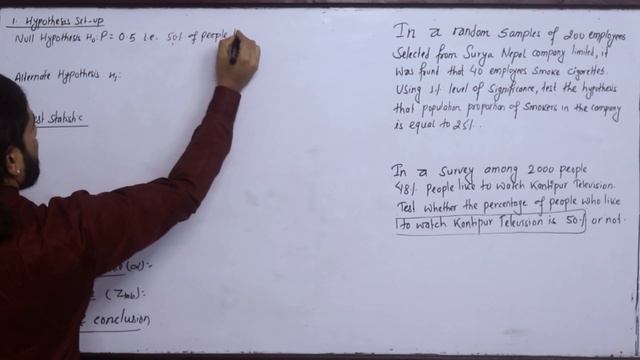 1. Hypothesis Set-up
Null Hypothesis H₀: P = 0.5 i.e. 50% of people
Alternate Hypothesis H₁:
est Statistic
(α):-
(Ztab):-
conclusion
In a random samples of 200 employees
selected from Surya Nepal company limited, it
was found that 40 employees smoke cigarettes.
Using 1% level of significance, test the hypothesis
that population proportion of smokers in the company
is equal to 25%.
In a survey among 2000 people
48% people like to watch Kantipur Television.
Test whether the percentage of people who like
to watch Kantipur Television is 50% or not.